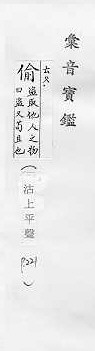 彙音寶鑑
ㄊㄡ·
偷
盜取他人之物
曰盜又苟且也
（沽上平聲
P221）